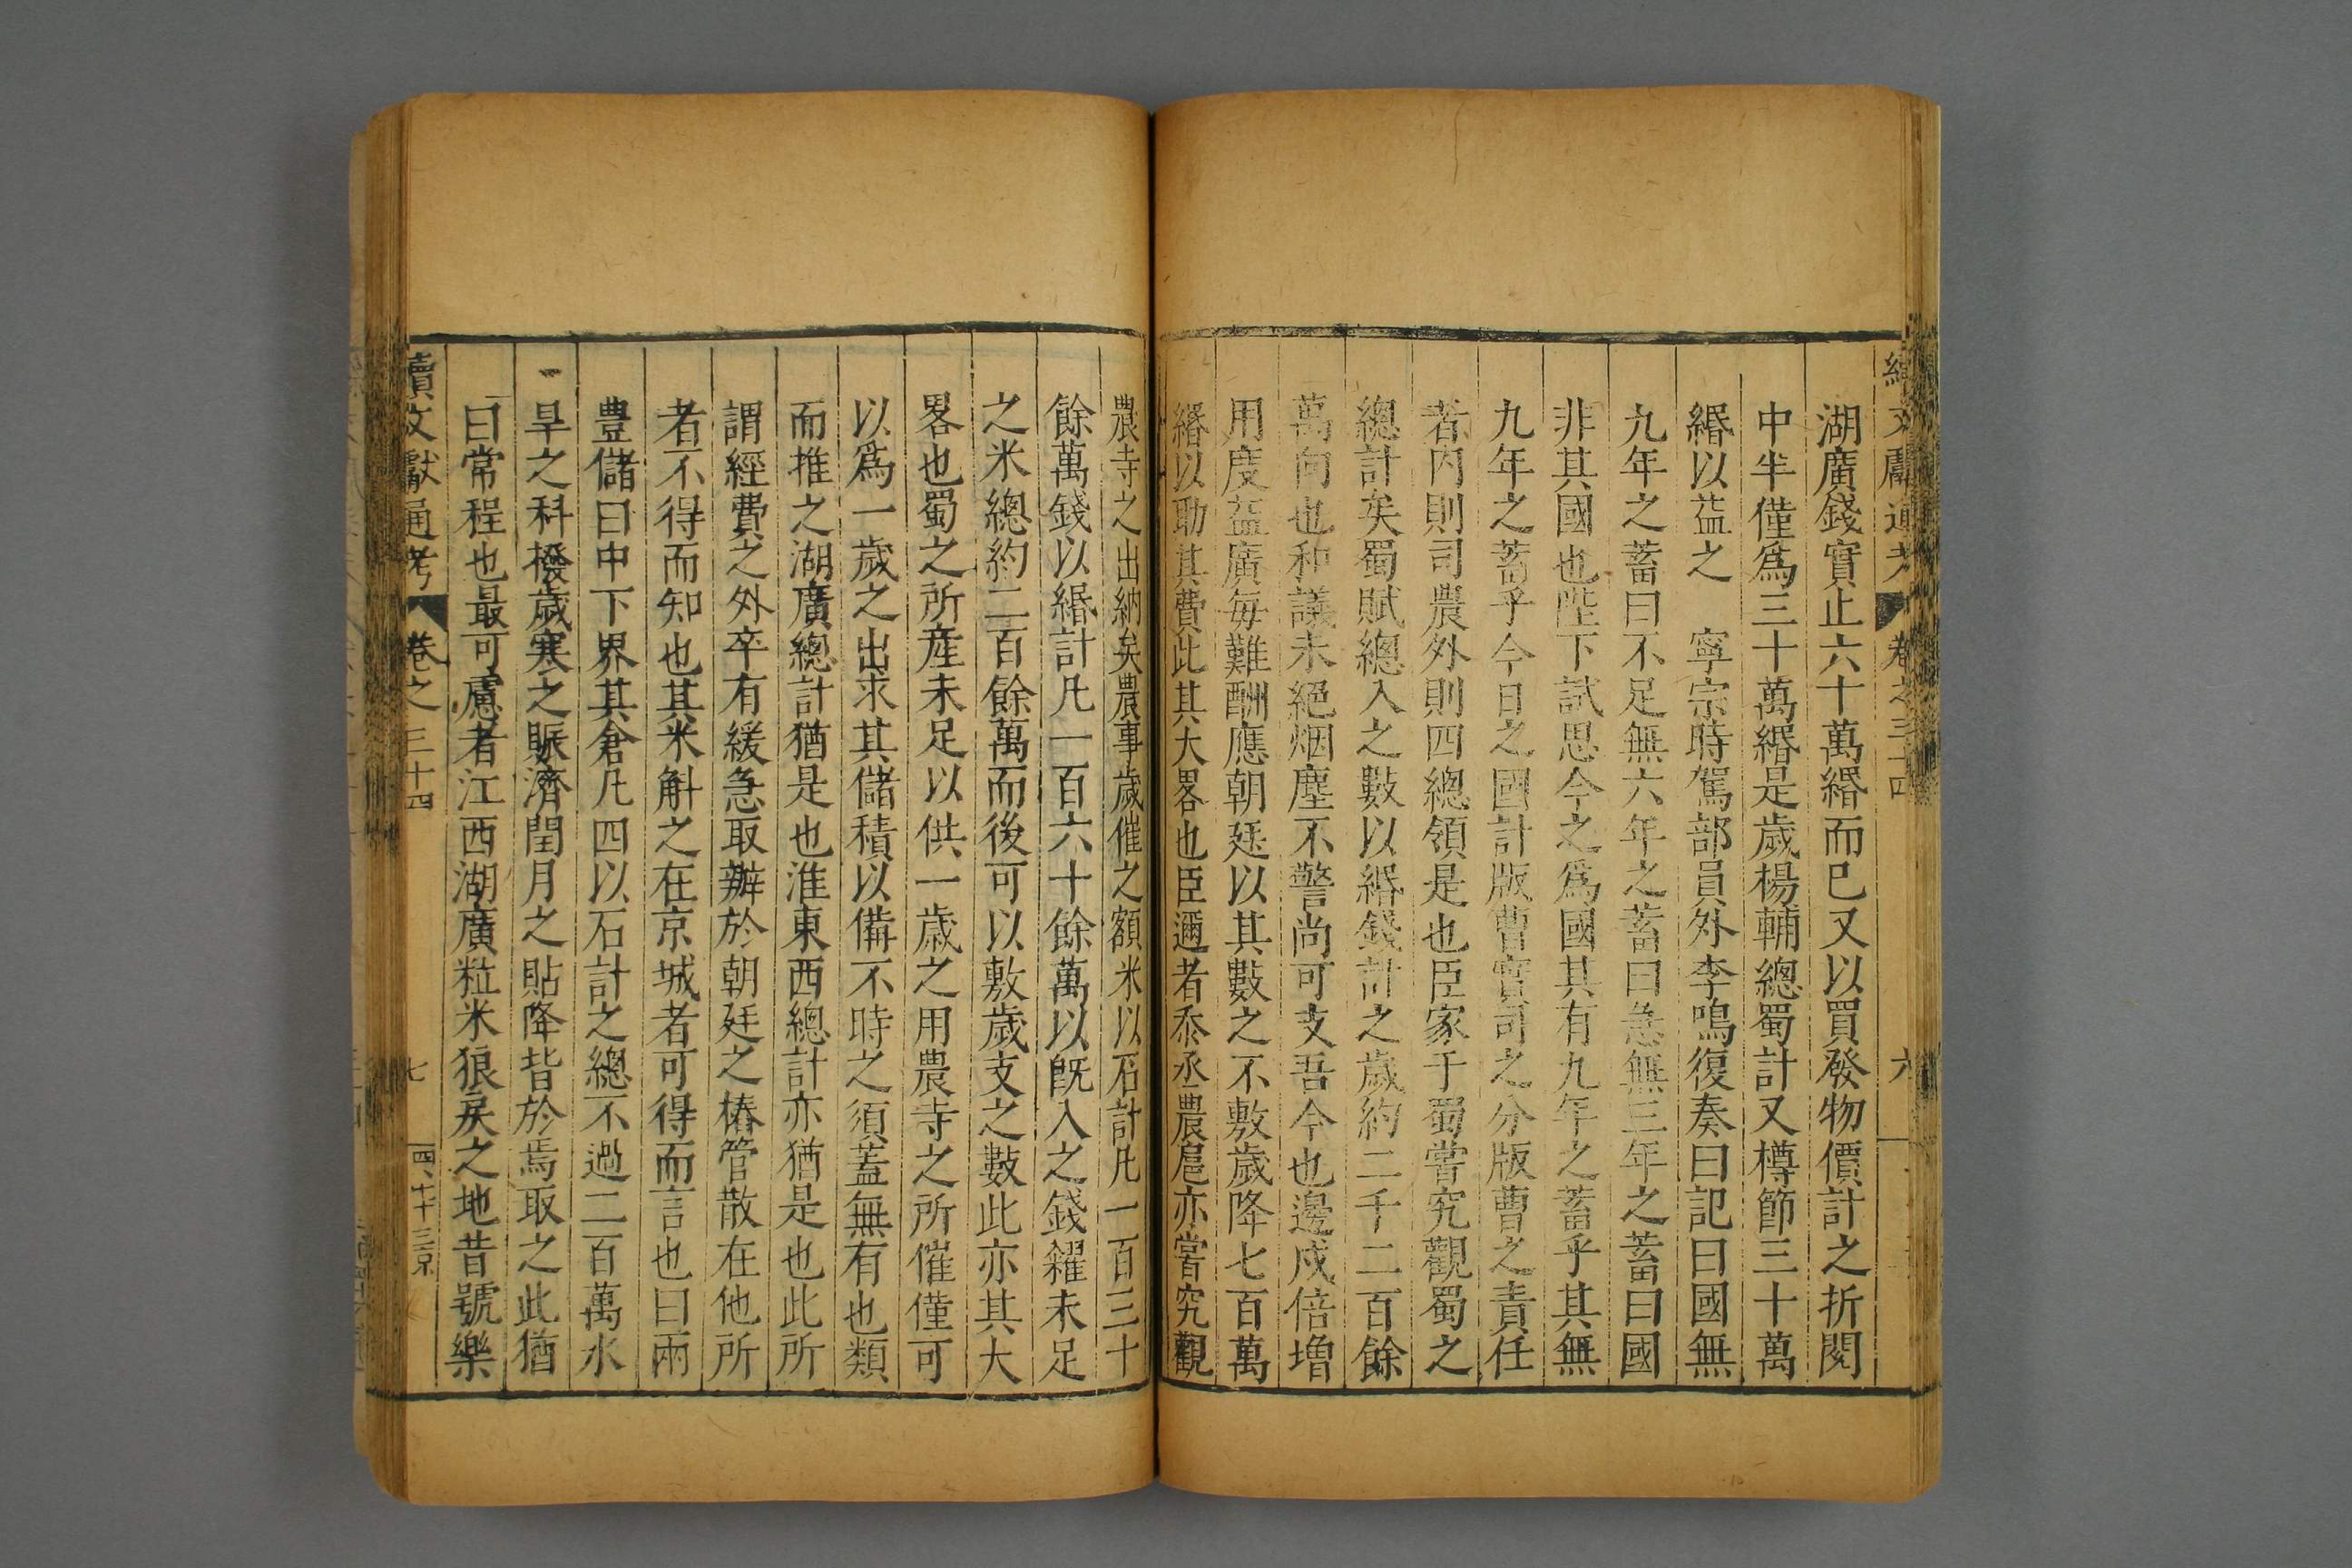 續文獻通考 卷之三十四 六
湖廣錢實止六十萬緡而已又以買發物價計之折閱
中半僅爲三十萬緡是歲楊輔總蜀計又樽節三十萬
緡以益之 寧宗時駕部員外李鳴復奏曰記曰國無
九年之蓄曰不足無六年之蓄曰急無三年之蓄曰國
非其國也陛下試思今之爲國其有九年之蓄乎其無
九年之蓄乎今日之國計版曹實司之分版曹之責任
者內則司農外則四總領是也臣家于蜀嘗究觀蜀之
總計矣蜀賦總入之數以緡錢計之歲約二千二百餘
萬向也和議未絕烟塵不警尚可支吾今也邊戍倍增
用度益廣每難酬應朝廷以其數之不敷歲降七百萬
緡以助其費此其大畧也臣邇者忝丞農扈亦嘗究觀
農寺之出納矣農事歲催之額米以石計凡一百三十
餘萬錢以緡計凡一百六十餘萬以旣入之錢糴未足
之米總約二百餘萬而後可以敷歲支之數此亦其大
畧也蜀之所產未足以供一歲之用農寺之所催僅可
以爲一歲之出求其儲積以備不時之須蓋無有也類
而推之湖廣總計猶是也淮東西總計亦猶是也此所
謂經費之外卒有緩急取辦於朝廷之樁管散在他所
者不得而知也其米斛之在京城者可得而言也曰兩
豊儲曰中下界其倉凡四以石計之總不過二百萬水
旱之科撥歲寒之賑濟閏月之貼降皆於焉取之此猶
曰常程也最可慮者江西湖廣粒米狼戾之地昔號樂
續文獻通考 卷之三十四 七 四十三京